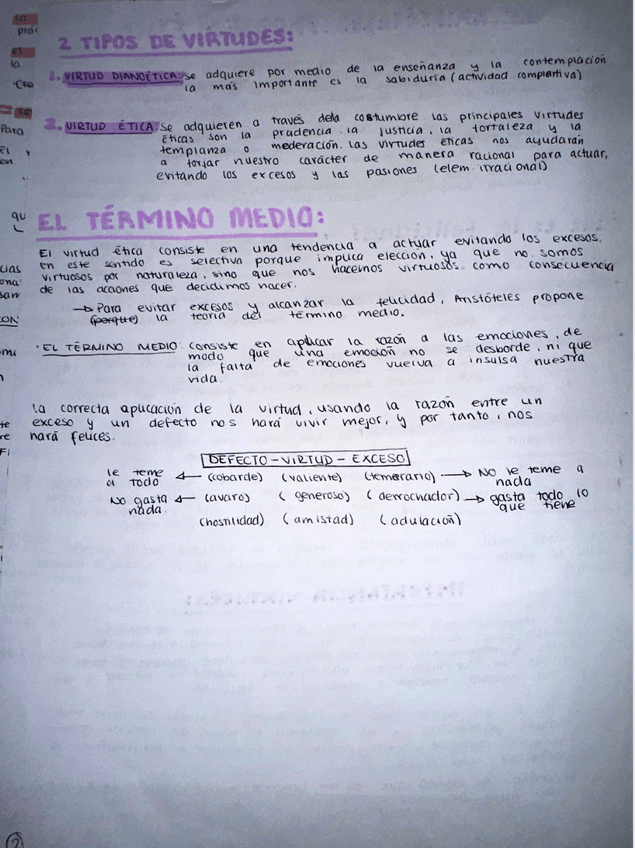 2 TIPOS DE VIRTUDES:
1. VIRTUD DIANOÉTICA: se adquiere por medio de la enseñanza y la contemplación
la más importante es la sabiduría (actividad complartiva)
2. VIRTUD ÉTICA: Se adquieren a través dela costumbre las principales virtudes
éticas son la prudencia, la justicia, la fortaleza y la
templanza o mederación. Las virtudes éticas nos ayudarán
a forjar nuestro carácter de manera racional para actuar,
evitando los excesos y las pasiones (elem. irracional)
EL TÉRMINO MEDIO:
El virtud ética consiste en una tendencia a actuar evitando los excesos.
en este sentido es selectiva porque implica elección, ya que no somos
virtuosos por naturaleza, sino que nos hacemos virtuosos como consecuencia
de las acciones que decidimos hacer.
→ Para evitar excesos y alcanzar la felicidad, Aristóteles propone
(porque) la teoría del término medio.
· EL TÉRMINO MEDIO: consiste en aplicar la razón a las emociones, de
modo que una emoción no se desborde, ni que
la falta de emociones vuelva a insulsa nuestra
vida.
La correcta aplicación de la virtud, usando la razón entre un
exceso y un defecto nos hará vivir mejor, y por tanto, nos
hará felices.
DEFECTO - VIRTUD - EXCESO
le teme a todo ← (cobarde) (valiente) (temerario) → No le teme a nada
No gasta nada. ← (avaro) (generoso) (derrochador) → gasta todo lo que tiene
(hostilidad) (amistad) (adulación)
2